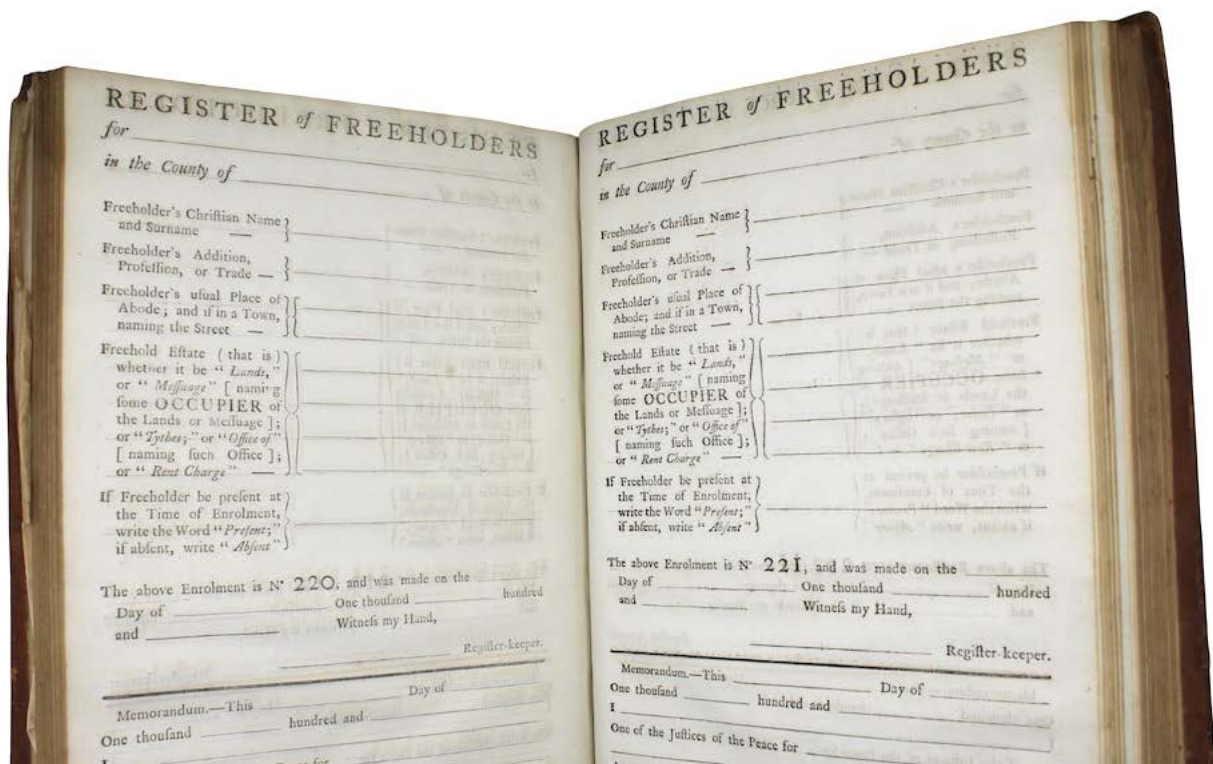 REGISTER of FREEHOLDERS
for
in the County of
Freeholder's Chriſtian Name
and Surname —
Freeholder's Addition,
Profeſſion, or Trade —
Freeholder's uſual Place of
Abode; and if in a Town,
naming the Street —
Freehold Eſtate ( that is )
whether it be " Lands,"
or " Meſſuage" [ naming
ſome OCCUPIER of
the Lands or Meſſuage ];
or " Tythes;" or " Office of"
[ naming ſuch Office ];
or " Rent Charge" —
If Freeholder be preſent at
the Time of Enrolment,
write the Word " Preſent;"
if abſent, write " Abſent"
The above Enrolment is No 220, and was made on the
Day of One thouſand hundred
and Witneſs my Hand,
Regiſter-keeper.
Memorandum.—This Day of
One thouſand hundred and
I
REGISTER of FREEHOLDERS
for
in the County of
Freeholder's Chriſtian Name
and Surname —
Freeholder's Addition,
Profeſſion, or Trade —
Freeholder's uſual Place of
Abode; and if in a Town,
naming the Street —
Freehold Eſtate ( that is )
whether it be " Lands,"
or " Meſſuage" [ naming
ſome OCCUPIER of
the Lands or Meſſuage ];
or " Tythes;" or " Office of"
[ naming ſuch Office ];
or " Rent Charge" —
If Freeholder be preſent at
the Time of Enrolment,
write the Word " Preſent;"
if abſent, write " Abſent"
The above Enrolment is No 221, and was made on the
Day of One thouſand hundred
and Witneſs my Hand,
Regiſter-keeper.
Memorandum.—This Day of
One thouſand hundred and
I
One of the Juſtices of the Peace for